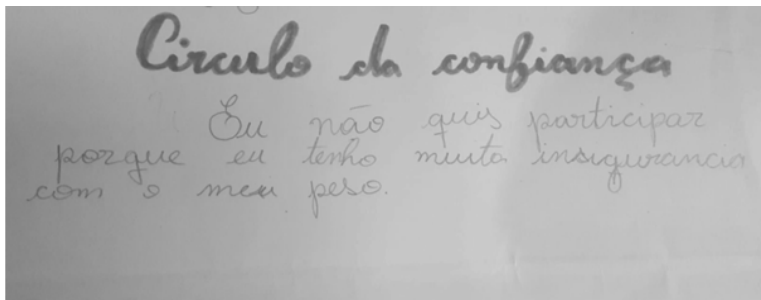 Circulo da confiança
Eu não quis participar
porque eu tenho muita insigurancia
com o meu peso.